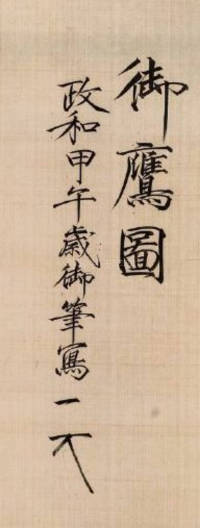 御鷹圖
政和甲午歲御筆寫